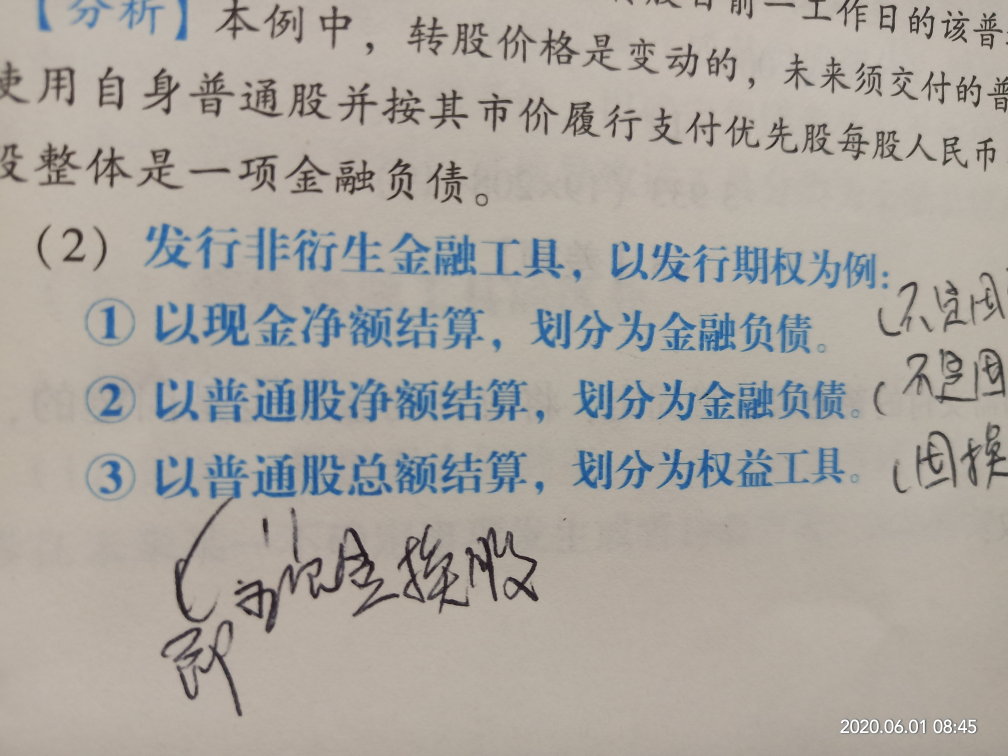 【分析】本例中，转股价格是变动的，未来须交付的普
前一工作日的该普
使用自身普通股并按其市价履行支付优先股每股人民币
股整体是一项金融负债。
（2）发行非衍生金融工具，以发行期权为例：
①以现金净额结算，划分为金融负债。（不是固
②以普通股净额结算，划分为金融负债。（不是固
③以普通股总额结算，划分为权益工具。（固换
换股
即
2020.06.01 08:45